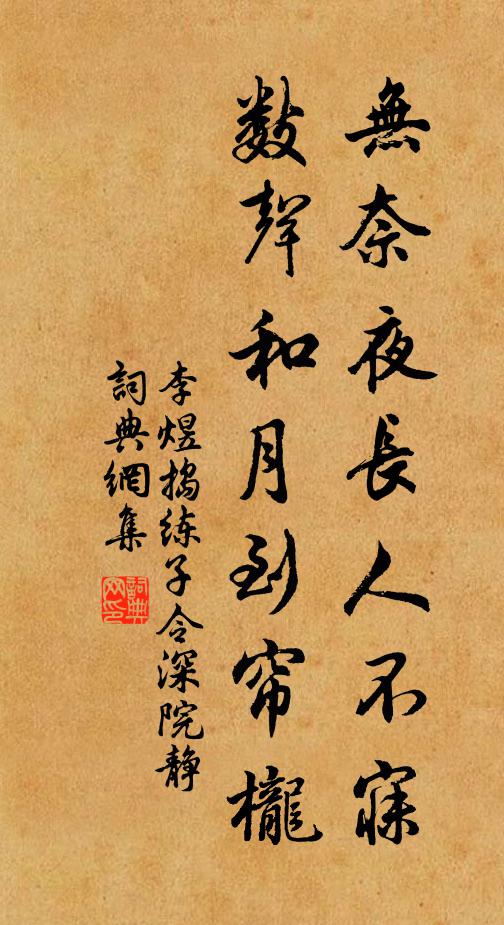 無奈夜長人不寐
數聲和月到帘櫳
李煜搗练子令深院靜
詞典網集
詞典网印